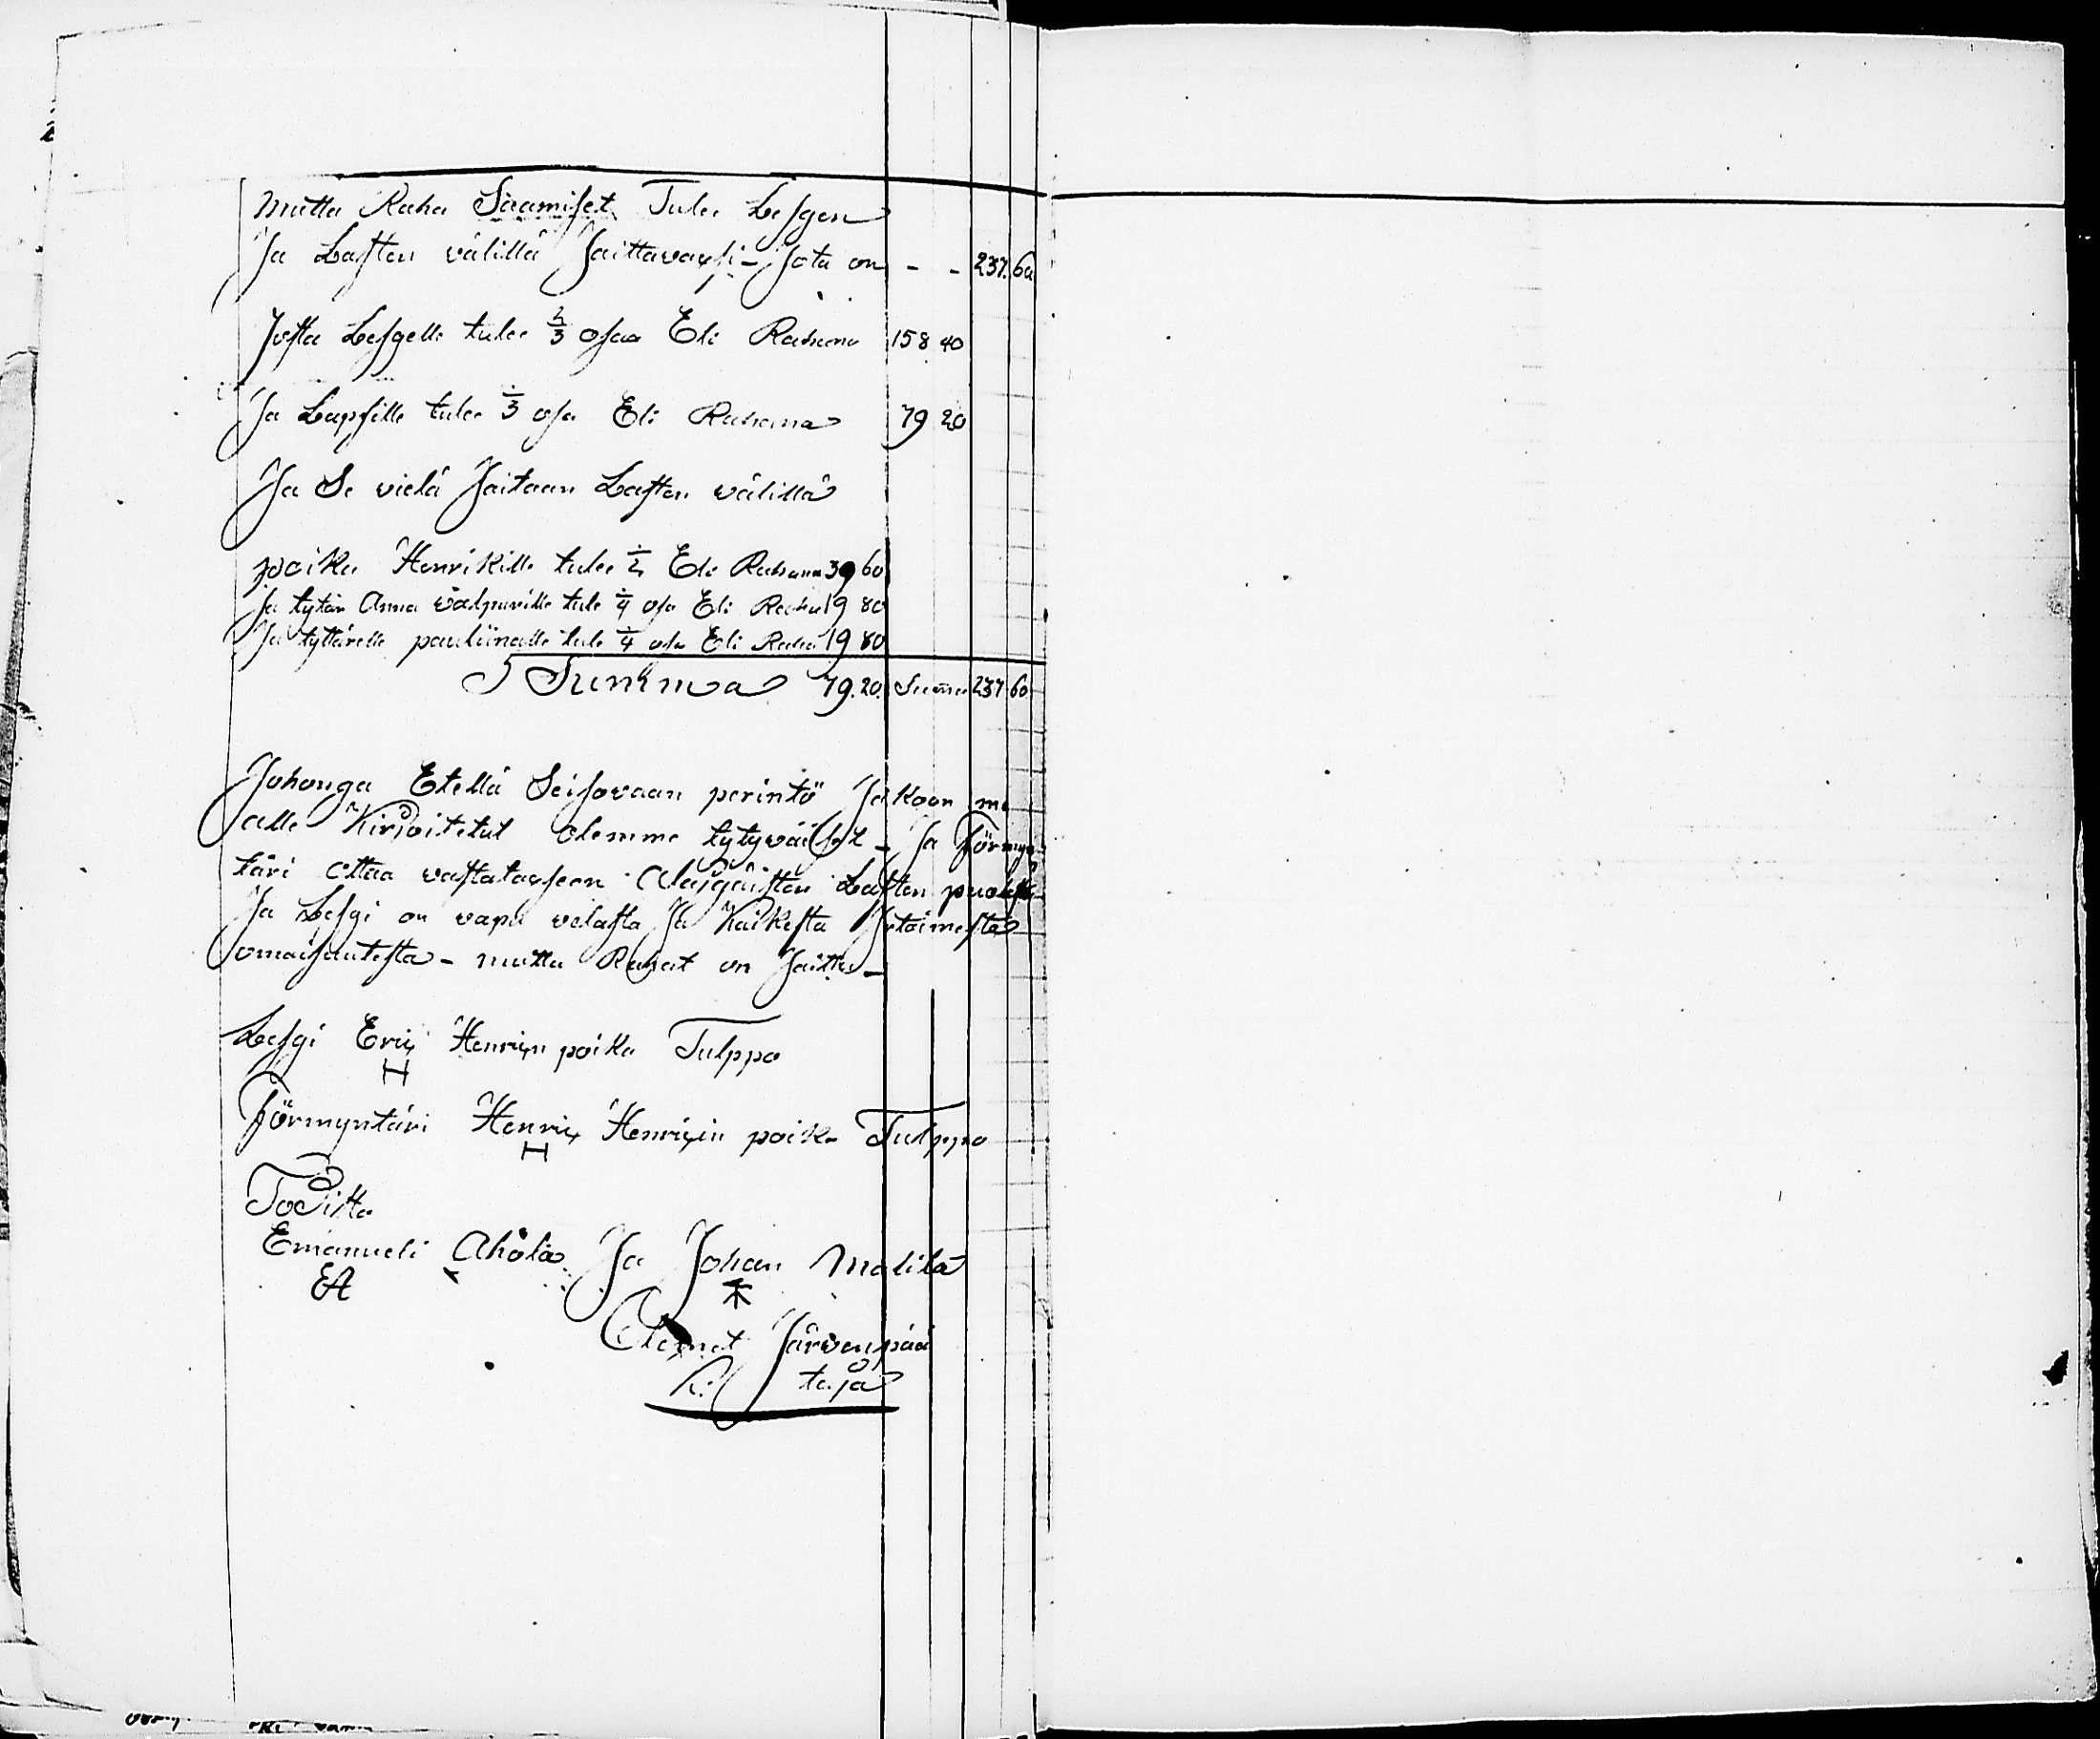 Mutta Raha Saamiset Tulee Lesgen
Ja Lasten välillä Jaittavaxsi - Jota on - - 237. 60
Josta Lesgelle tulee 2/3 osaa Eli Rahana 158 40
Ja Lapsille tulee 1/3 osa Eli Rahana 79 20
Ja Se vielä Jaitaan Lasten välillä
poika Henrikille tulee 1/2 Eli Rahana 39 60
Ja tytär Anna Valpurille tule 1/4 osa Eli Raha 19 80
Ja tyttärelle pauliinalle tule 1/4 osa Eli Raha 19 80
Summa 79. 20. Summa 237 60
Johonga Etellä Seisovaan perintö Jakoon me
alle Kirjoitetut olemme tytyväiset - Ja Förmyn-
täri ottaa vastataxseen Alaigäisten Lasten puolesta
Ja Lesgi on vapa velasta Ja Kaikesta Irtoimesta
omaisuutesta - mutta Rahat on Jaittu -
Lesgi Erix Henrixn poika Tulppo
H
Förmyntäri Henrix Henrixin poika Tulppo
H
Todista
Emanueli Ahola Ja Johan Matila
EA
Clemet Järvenpää
K: taja